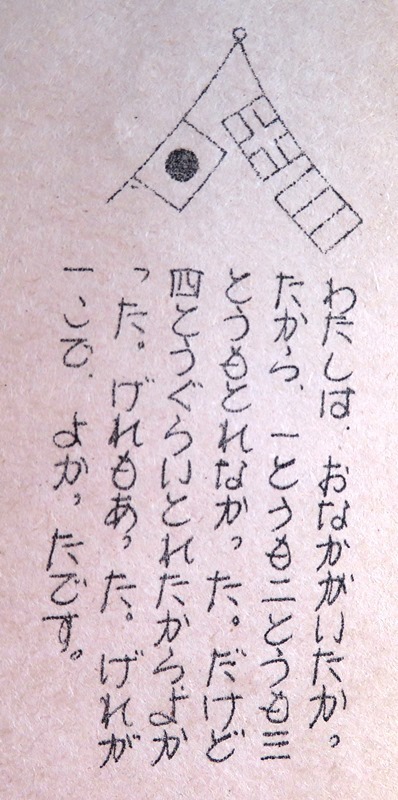 わたしは、おなかがいたかっ
たから、一とうも二とうも三
とうもとれなかった。だけど
四とうぐらいとれたからよか
った。げれもあった。げれが
一こで、よかったです。